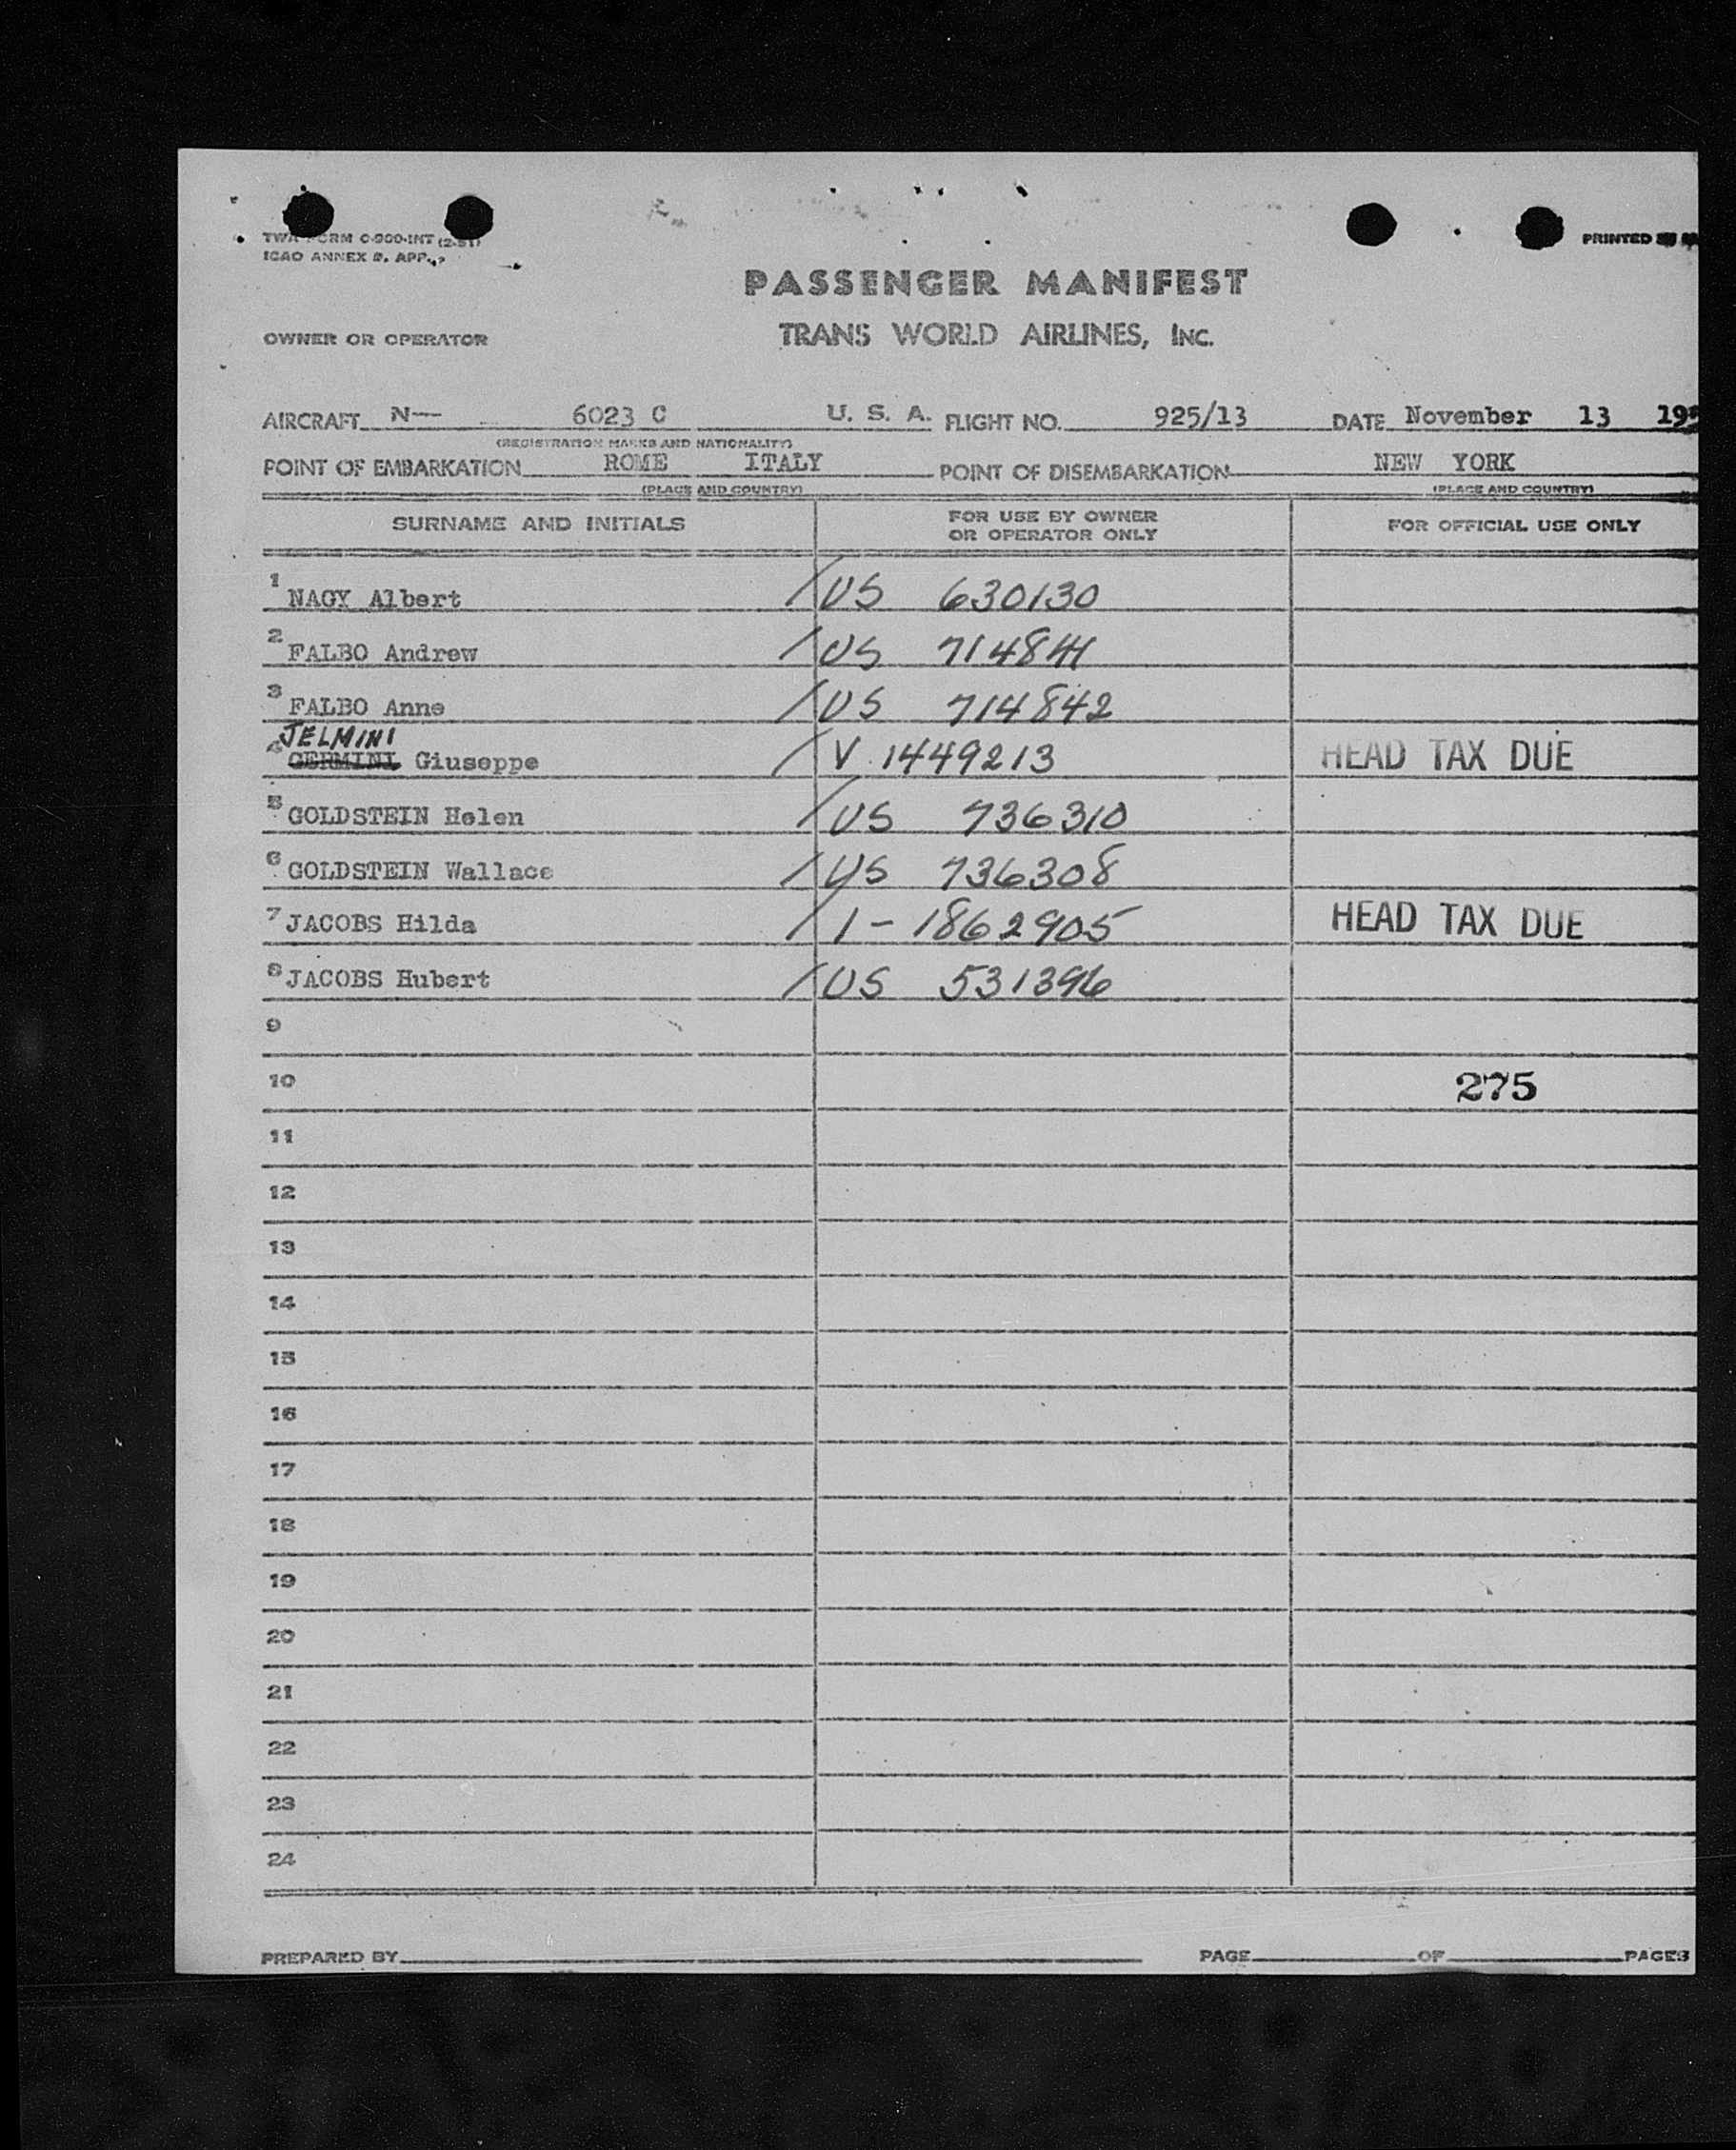 TWA FORM C-900-INT (2-51)
ICAO ANNEX 9, APP.
PRINTED
PASSENGER MANIFEST
OWNER OR OPERATOR TRANS WORLD AIRLINES, INC.
AIRCRAFT N— 6023 C U. S. A. FLIGHT NO. 925/13 DATE November 13 19
(REGISTRATION MARKS AND NATIONALITY)
POINT OF EMBARKATION ROME ITALY POINT OF DISEMBARKATION NEW YORK
(PLACE AND COUNTRY) (PLACE AND COUNTRY)
SURNAME AND INITIALS FOR USE BY OWNER OR OPERATOR ONLY FOR OFFICIAL USE ONLY
1 NAGY Albert / US 630130
2 FALBO Andrew / US 714841
3 FALBO Anne / US 714842
JELMINI
4 GERMINI Giuseppe / V 1449213 HEAD TAX DUE
5 GOLDSTEIN Helen / US 736310
6 GOLDSTEIN Wallace / US 736308
7 JACOBS Hilda / I - 1862905 HEAD TAX DUE
8 JACOBS Hubert / US 531396
9
10 275
11
12
13
14
15
16
17
18
19
20
21
22
23
24
PREPARED BY PAGE OF PAGES